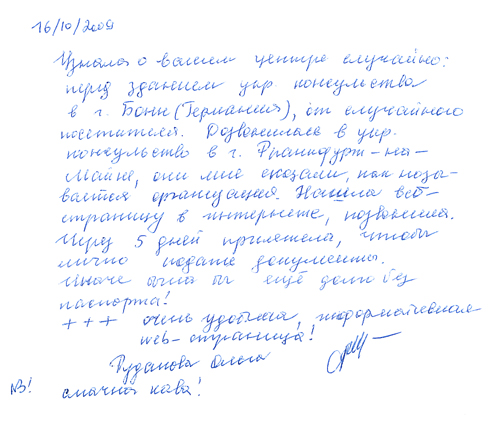 16/10/2009
Узнала о вашем центре случайно:
перед зданием укр. консульства
в г. Бонн (Германия), от случайного
посетителя. Дозвонилась в укр.
консульство в г. Франкфурт-на-
Майне, они мне сказали, как назы-
вается организация. Нашла веб-
страницу в интернете, позвонила.
Через 5 дней прилетела, чтобы
лично подать документы.
Иначе была бы ещё долго без
паспорта!
+++ очень удобная, информативная
web-страница!
Рудакова Ольга
№3! смачна кава!